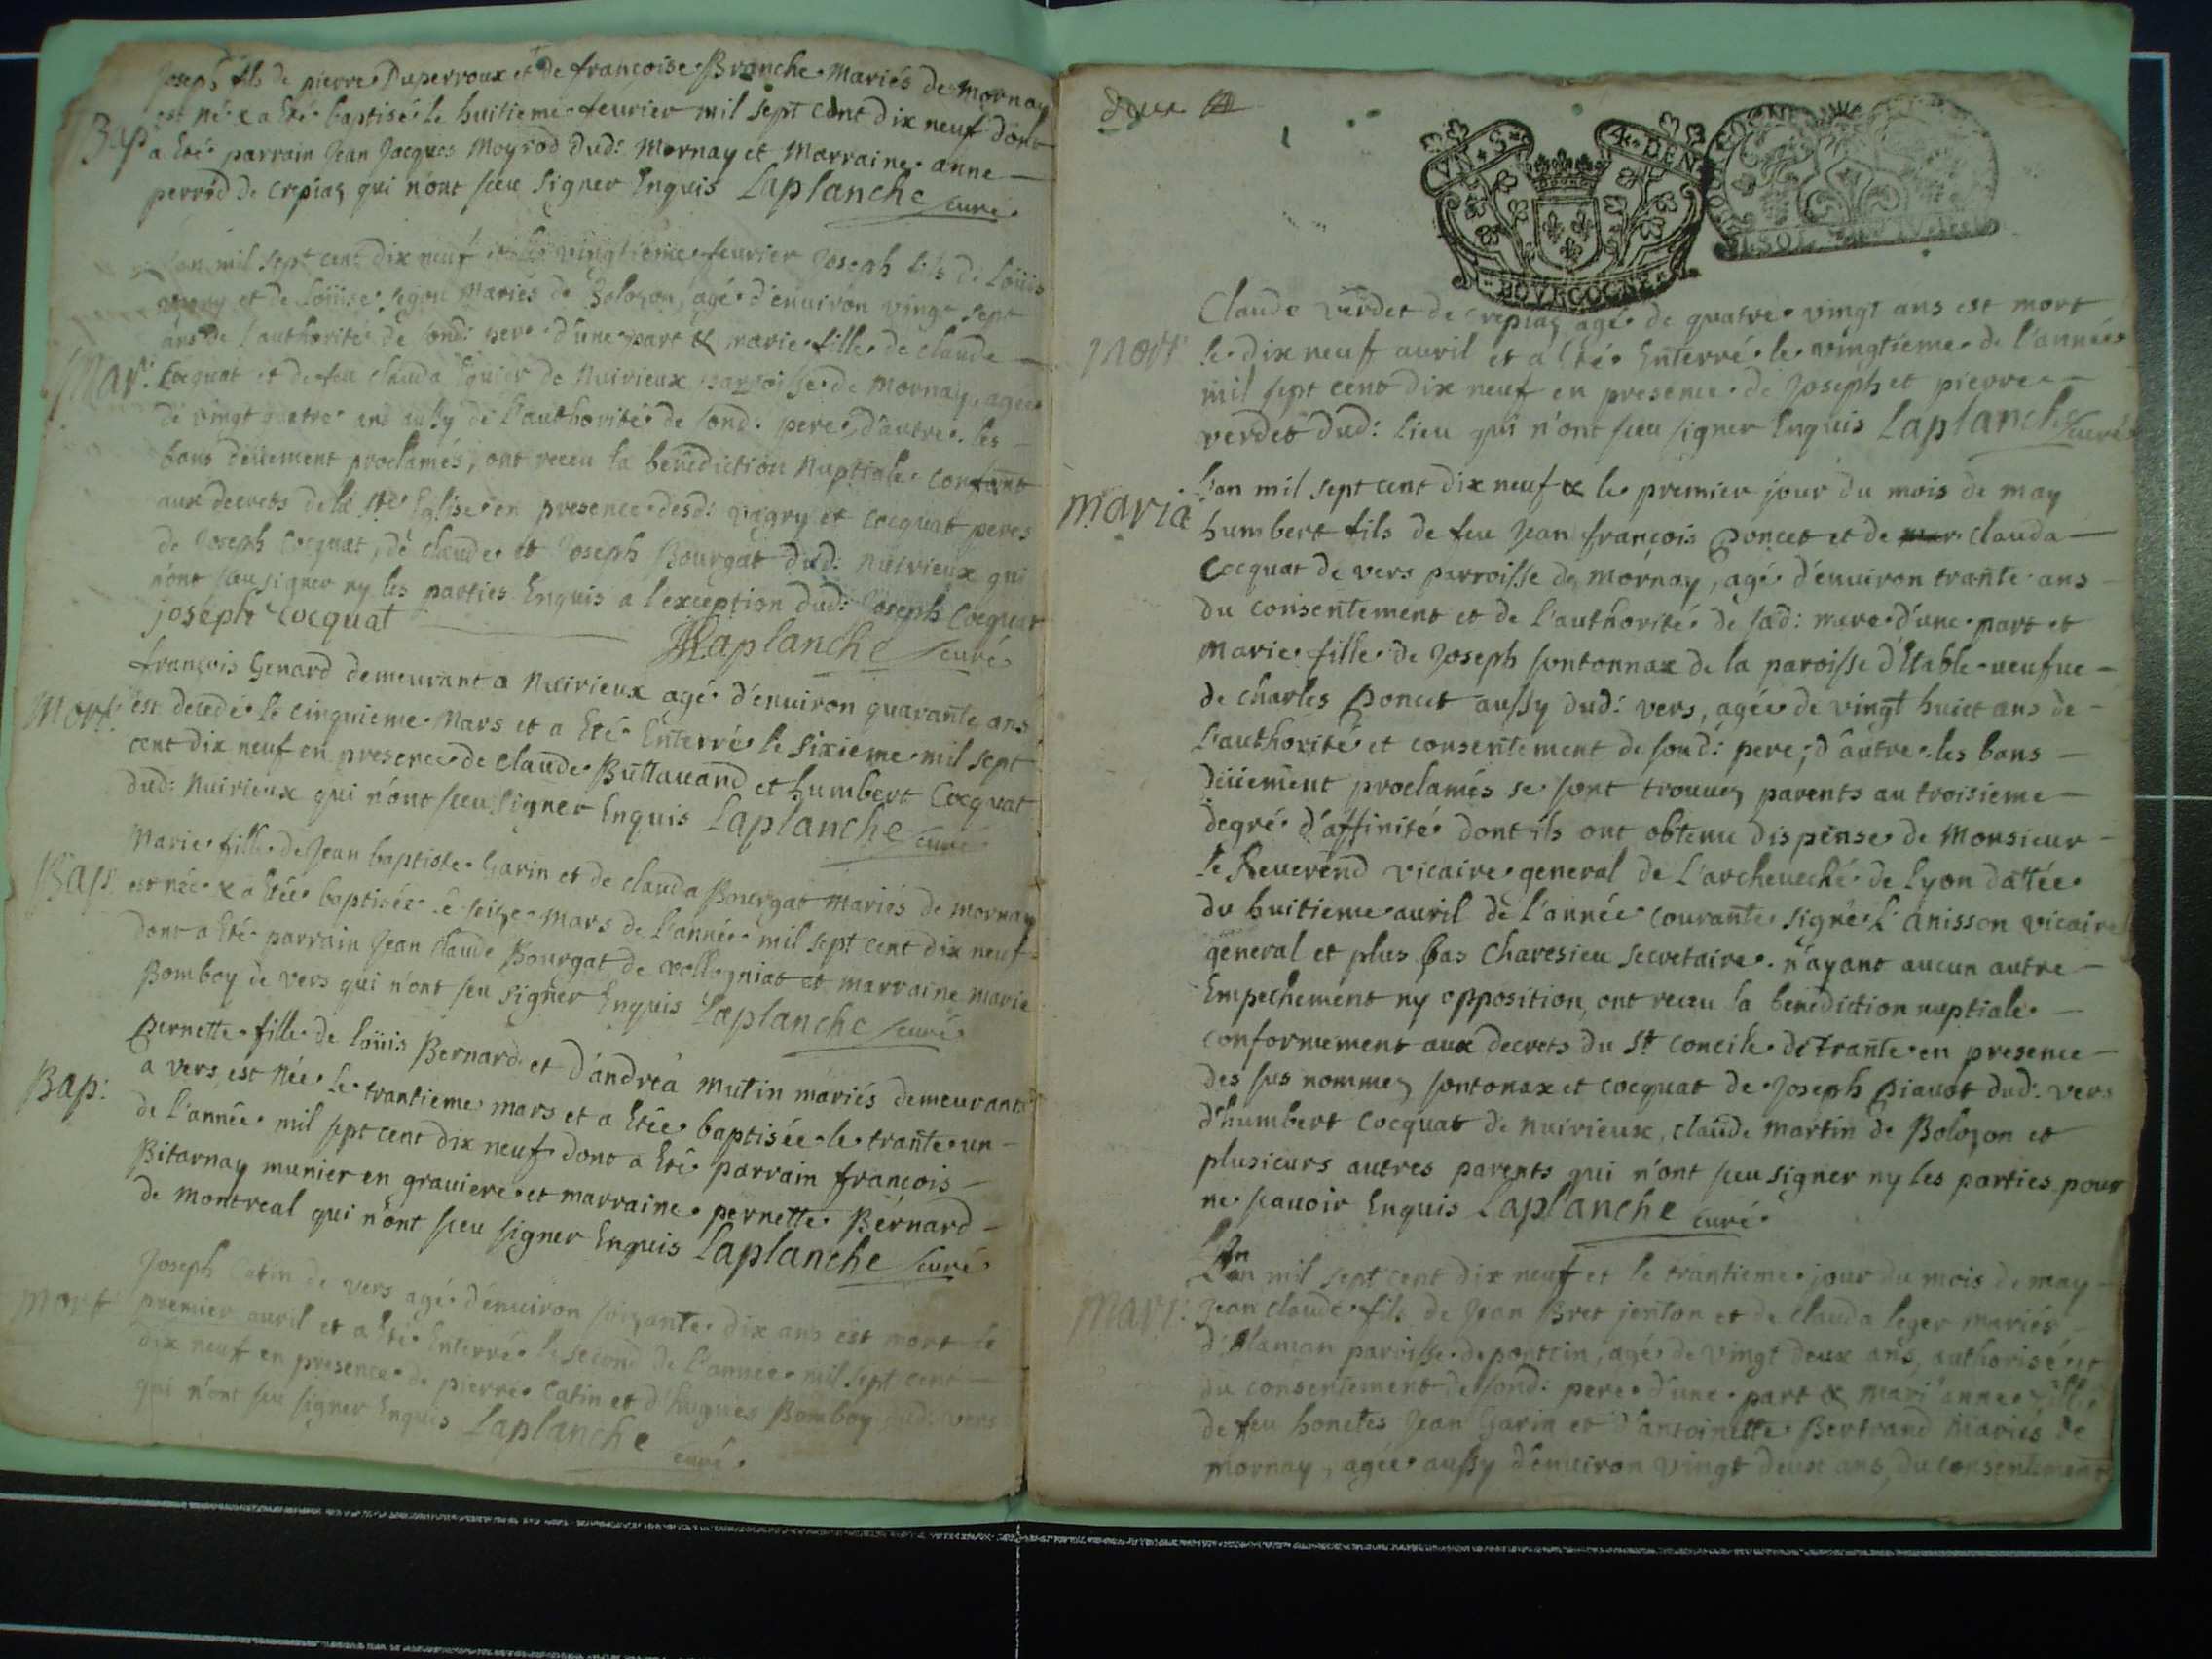 Joseph fils de pierre Duperroux et de françoise Branche Mariés de Mornay
est né & a Eté baptisé le huitieme feurier mil sept cent dix neuf dont
Bap:
a Eté parrain Jean Jacques Moyrod dud: Mornay et Marraine anne
perrod de crepiaz qui n'ont sceu signer Enquis Laplanche curé
L'an mil sept cent dix neuf et le vingtieme feurier Joseph fils de Loüis
vugry et de Loüise Mariés de Bolozon, agé d'enuiron vingt sept
ans de l'authorité de sond: pere d'une part & marie fille de claude
Mar:
Cocquat et de feu clauda de Nuirieux parroisse de Mornay, agée
de vingt quatre ans aussy de l'authorité de sond: pere, d'autre les
bans deüement proclamés, ont receu la bénédiction Nuptiale conformt
aux decrets de la Ste Eglise en presence desd: vugry et cocquat peres
de Joseph Cocquat, de claude et Joseph Bourgat dud: Nuirieux qui
n'ont sceu signer ny les parties Enquis a l'exception dud: Joseph Cocquat
joseph cocquat
Laplanche curé
françois Genard demeurant a Nuirieux agé d'énuiron quarante ans
Mort:
est decedé le cinquieme Mars et a Eté Enterré le sixieme mil sept
cent dix neuf en presence de claude Buttauand et humbert Cocquat
dud: Nuirieux qui n'ont sceu signer Enquis Laplanche curé
Marie fille de Jean baptiste Garin et de clauda Bourgat Mariés de Mornay
Bap
est née & a Etée baptisée le seize Mars de l'année mil sept cent dix neuf
dont a Eté parrain Jean claude Bourgat de vollogniat et marraine marie
Bomboy de vers qui n'ont seu signer Enquis Laplanche curé
pernette fille de loüis Bernard et d'andréa Mutin mariés demeurants
Bap:
a vers, est Née le trantieme mars et a Etée baptisée le trante un
de l'année mil sept cent dix neuf dont a Eté parrain françois
Bitarnay munier en grauiere et marraine pernette Bérnard
de Montreal qui n'ont sceu signer Enquis Laplanche curé
Joseph Catin de vers agé d'énuiron soizante dix ans est mort le
Mort
premier auril et a Eté Enterré le second de l'année mil sept cent
dix neuf en présence de pierre Catin et d'hugues Bomboy dud: vers
qui n'ont seu signer Enquis Laplanche curé
deux
VIN S 4 DEN
BOVRGOGNE
Claude verdet de crepiaz agé de quatre vingt ans est mort
Mort
le dix neuf auril et a Eté Enterré le vingtieme de l'année
mil sept cent dix neuf en presence de Joseph et pierre
verdet dud: lieu qui n'ont sceu signer Enquis Laplanche curé
L'an mil sept cent dix neuf & le premier jour du mois de may
maria
humbert fils de feu Jean françois poncet et de clauda
Cocquat de vers parroisse de Mornay, agé d'énuiron trante ans
du consentement et de l'authorité de sad: mere d'une part et
Marie fille de Joseph sontonnax de la paroisse d'Etable ueufue
de charles poncet aussy dud: vers, agée de vingt huict ans de
l'authorité et consentement de sond: pere, d'autre les bans
deüement proclamés se sont trouuez parents au troisieme
degré d'affinité dont ils ont obtenu dispense de Monsieur
le Reuerend vicaire general de l'archeueché de Lyon dattée
du huitieme auril de l'année courante signé L'anisson vicaire
general et plus bas Charesieu secretaire. n'ayant aucun autre
Empechement ny opposition, ont receu la bénédiction nuptiale
conformement aux decrets du St concile de trante en presence
des sus nommez sontonax et cocquat de Joseph piauot dud: vers
d'humbert Cocquat de Nuirieux, claude Martin de Bolozon et
plusieurs autres parents qui n'ont sceu signer ny les parties pour
ne scauoir Enquis Laplanche curé
L'an mil sept cent dix neuf et le trantieme jour du mois de may
Mari:
Jean claude fils de Jean Bret jenton et de clauda leger mariés
d'Alaman paroisse de pontcin, agé de vingt deux ans, authorisé et
du consentement de sond: pere d'une part & Mari'anne fille
de feu honetes Jean Garin et d'antoinette Bertrand Mariés de
Mornay, agée aussy d'énuiron vingt deux ans, du consentement